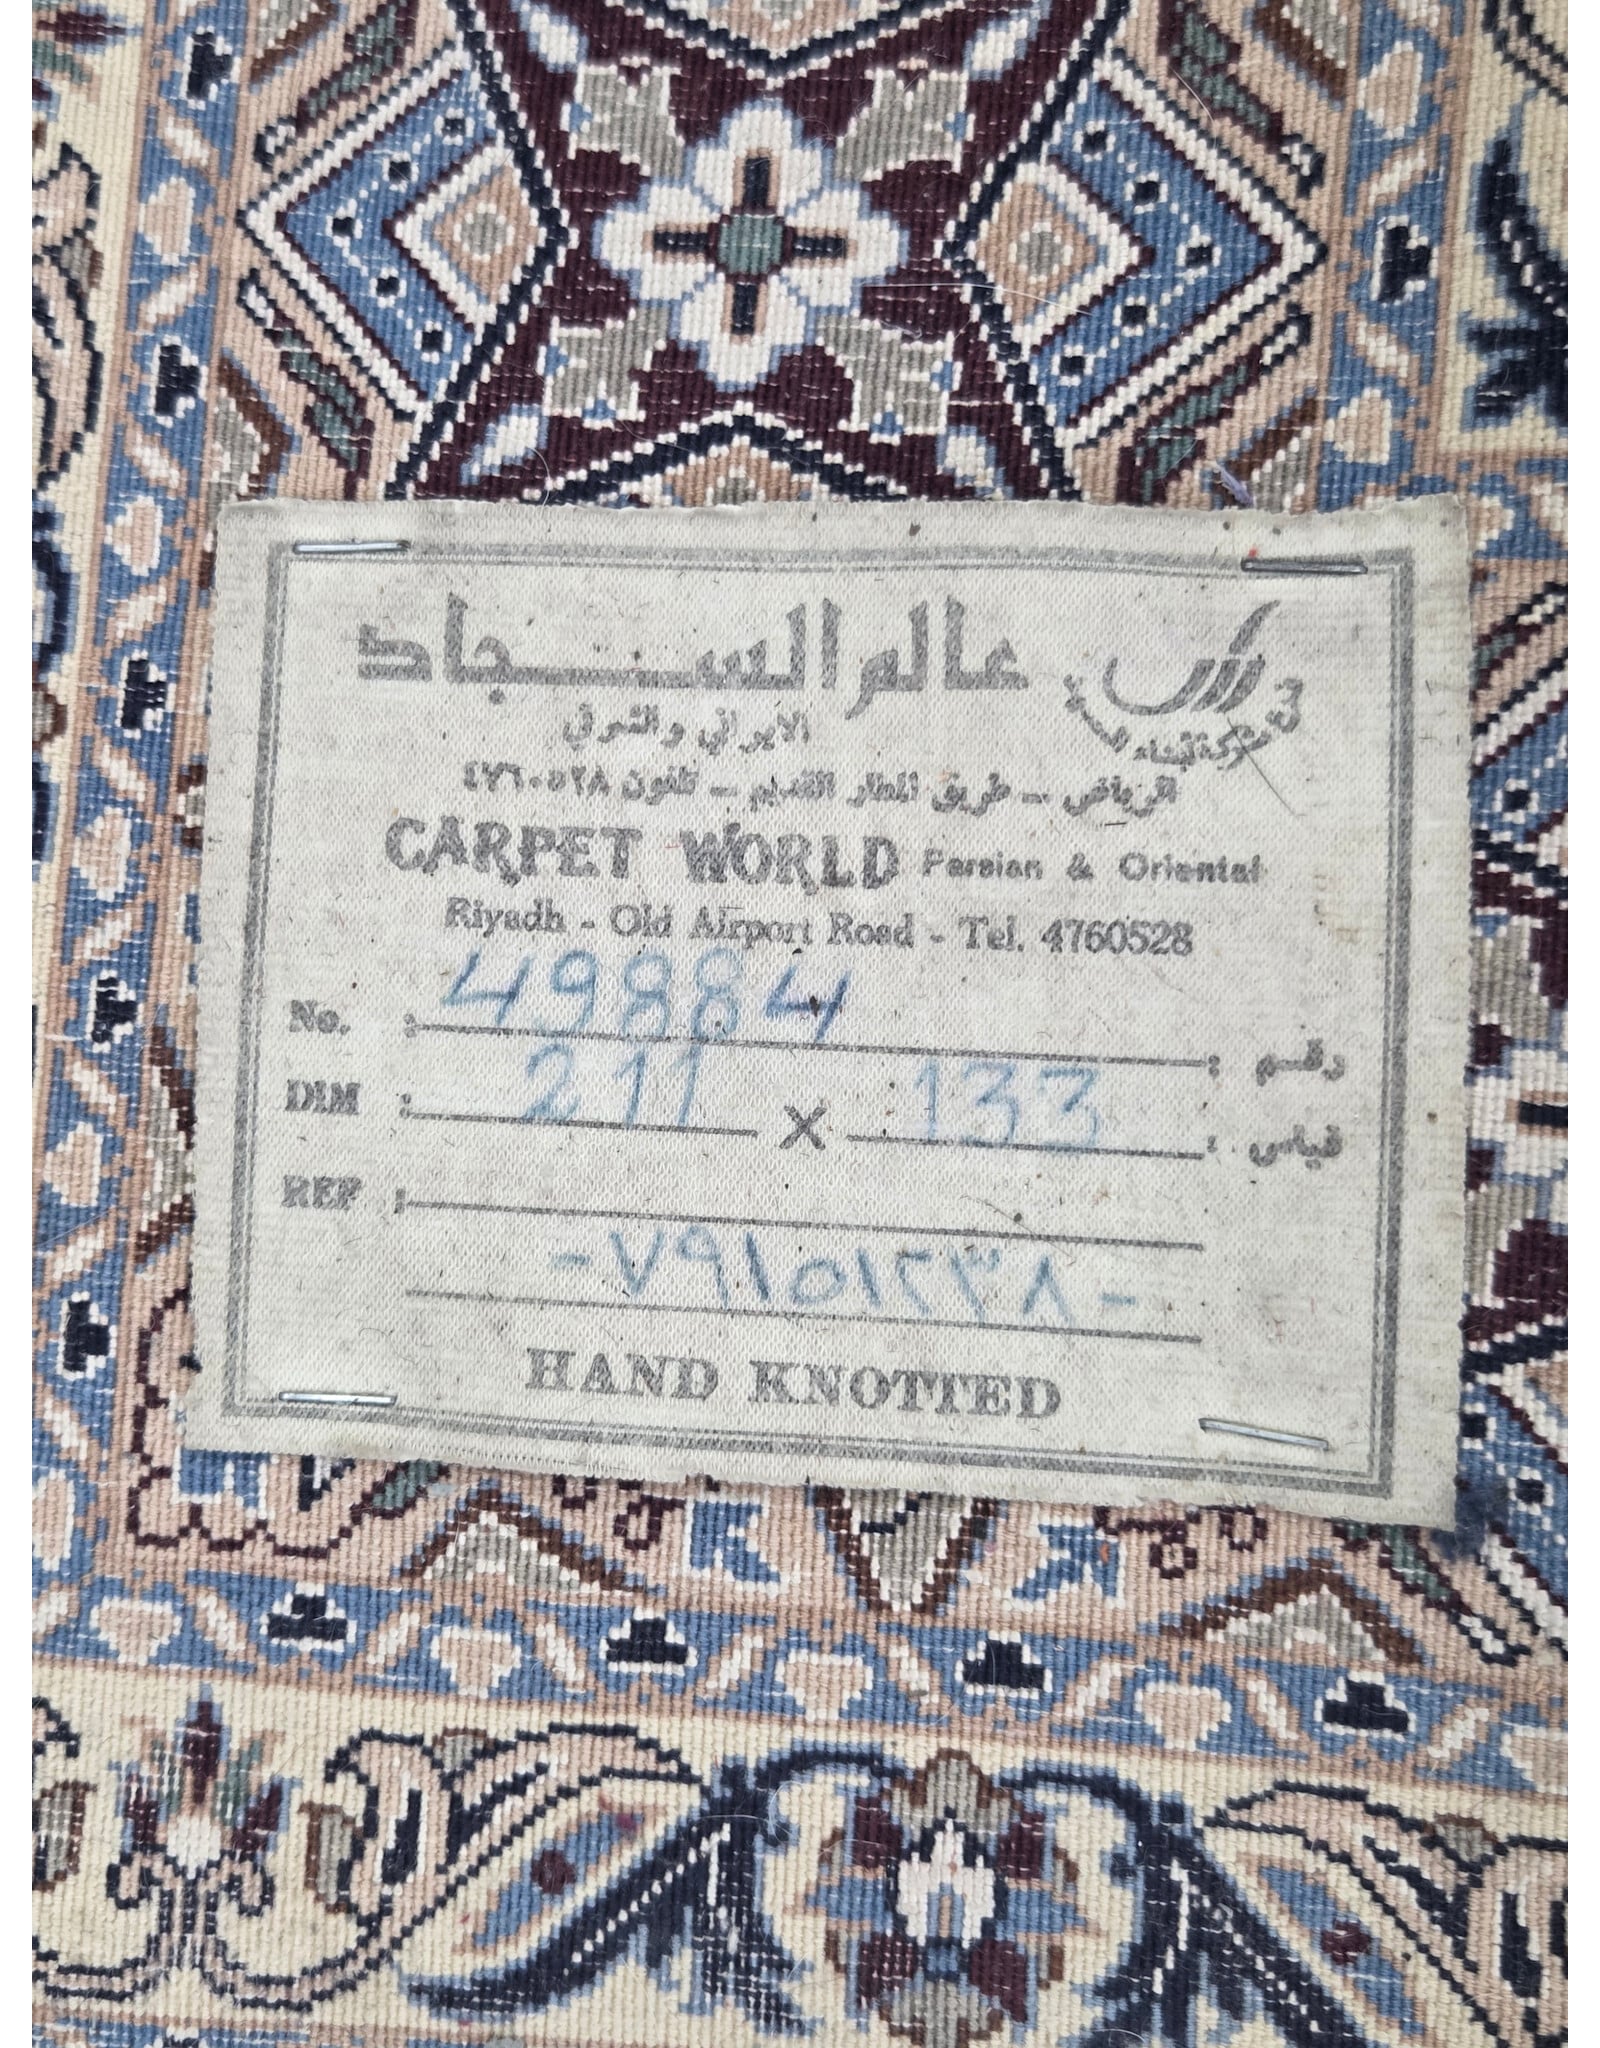 عالم السجاد
الايراني والشرقي
الرياض - طريق المطار القديم - تلفون ٤٧٦٠٥٢٨
CARPET WORLD Persian & Oriental
Riyadh - Old Airport Road - Tel. 4760528
No. : 49884 : رقم
DIM : 211 X 133 : قياس
REF :
-٧٩١٥١٢٣٨-
HAND KNOTTED